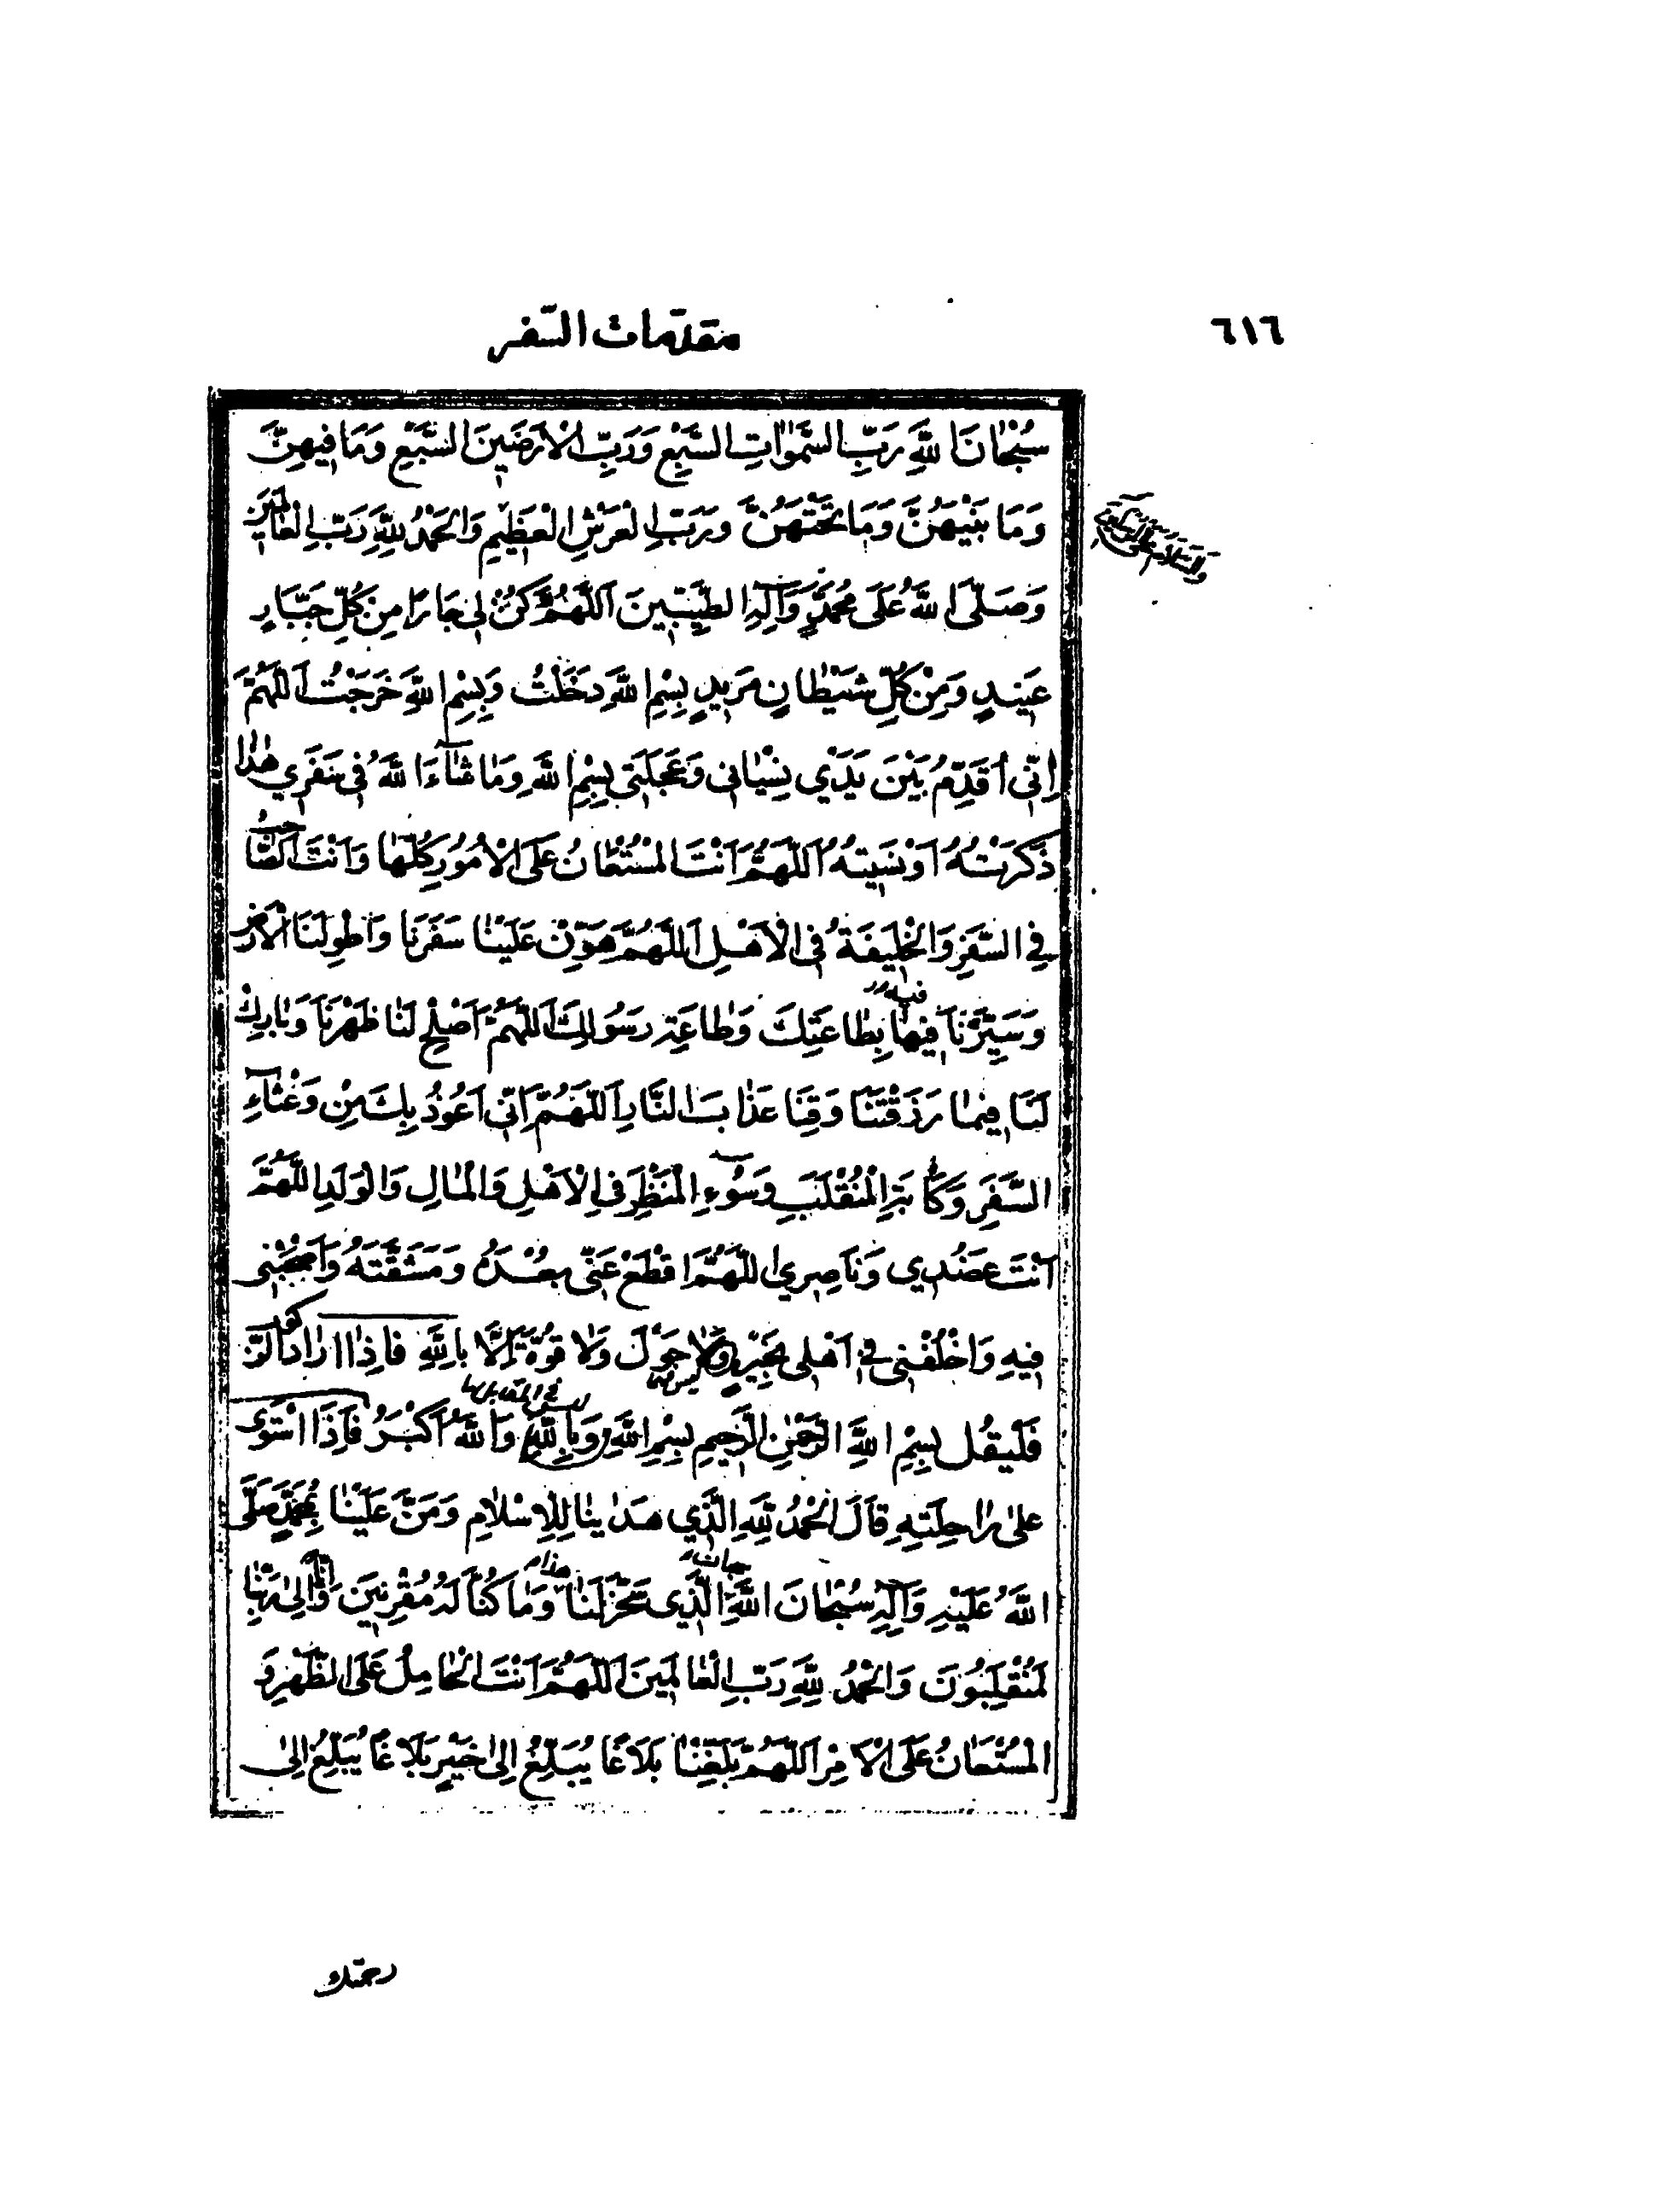 ٦١٦
مقدّمات السّفر
سُبْحٰانَ اللّٰهِ رَبِّ السَّمٰوٰاتِ السَّبْعِ وَرَبِّ الْاَرَضَينَ السَّبْعِ وَمَا فيهِنَّ
وَمَا بَيْنَهُنَّ وَمَا تَحْتَهُنَّ وَرَبِّ الْعَرْشِ الْعَظيمِ وَالْحَمْدُ لِلّٰهِ رَبِّ الْعٰالَمينَ
وَالسَّلامُ عَلَى الْمُرْسَلينَ
وَصَلَّى اللّٰهُ عَلَى مُحَمَّدٍ وَآلِهِ الطَّيِّبينَ اَللّٰهُمَّ كُنْ لى جَارًا مِنْ كُلِّ جَبّٰارٍ
عَنيدٍ وَمِنْ كُلِّ شَيْطٰانٍ مَريدٍ بِسْمِ اللّٰهِ دَخَلْتُ وَبِسْمِ اللّٰهِ خَرَجْتُ اَللّٰهُمَّ
اِنّى اُقَدِّمُ بَيْنَ يَدَيْ نِسْيٰانى وَعَجَلَتى بِسْمِ اللّٰهِ وَمٰا شٰآءَ اللّٰهُ فى سَفَري هٰذٰا
ذَكَرْتُهُ اَوْ نَسيتُهُ اَللّٰهُمَّ اَنْتَ الْمُسْتَعٰانُ عَلَى الْاُمُورِ كُلِّهٰا وَاَنْتَ الصّٰاحِبُ
فِي السَّفَرِ وَالْخَليفَةُ فِى الْاَهْلِ اَللّٰهُمَّ هَوِّنْ عَلَيْنٰا سَفَرَنَا وَاطْوِ لَنَا الْاَرْضَ
وَسَيِّرْنَا فيهٰا بِطٰاعَتِكَ وَطٰاعَةِ رَسُولِكَ اَللّٰهُمَّ اَصْلِحْ لَنٰا ظَهْرَنَا وَبٰارِكْ
لَنَا فيمٰا رَزَقْتَنٰا وَقِنَا عَذٰابَ النَّارِ اَللّٰهُمَّ اِنّى اَعُوذُ بِكَ مِنْ وَعْثٰآءِ
السَّفَرِ وَكَآبَةِ الْمُنْقَلَبِ وَسُوءِ الْمَنْظَرِ فِى الْاَهْلِ وَالْمٰالِ وَالْوَلَدِ اَللّٰهُمَّ
اَنْتَ عَضُدي وَنَاصِري اَللّٰهُمَّ اقْطَعْ عَنّى بُعْدَهُ وَمَشَقَّتَهُ وَاصْحَبْنى
فيهِ وَاخْلُفْنى فى اَهْلى بِخَيْرٍ وَلٰا حَوْلَ وَلٰا قُوَّةَ اِلَّا بِاللّٰهِ فَاِذٰا اَرٰادَ الرّكوب
فَلْيَقُل بِسْمِ اللّٰهِ الرَّحْمٰنِ الرَّحيمِ بِسْمِ اللّٰهِ وَبِاللّٰهِ وَاللّٰهُ اَكْبَرُ فَاِذَا اسْتَوٰى
عَلىٰ رٰاحِلَتِهِ قَالَ اَلْحَمْدُ لِلّٰهِ الَّذي هَدٰينٰا لِلْاِسْلٰامِ وَمَنَّ عَلَيْنٰا بِمُحَمَّدٍ صَلَّى
اللّٰهُ عَلَيْهِ وَآلِهِ سُبْحٰانَ اللّٰهِ الَّذى سَخَّرَ لَنٰا هذا وَمٰا كُنّٰا لَهُ مُقْرِنينَ وَاِنّٰا اِلىٰ رَبِّنٰا
لَمُنْقَلِبُونَ وَالْحَمْدُ لِلّٰهِ رَبِّ الْعٰالَمينَ اَللّٰهُمَّ اَنْتَ الْحٰامِلُ عَلَى الظَّهْرِ وَ
الْمُسْتَعٰانُ عَلَى الْاَمْرِ اَللّٰهُمَّ بَلِّغْنٰا بَلَاغًا يُبَلِّغُ اِلىٰ خَيْرٍ بَلَاغًا يُبَلِّغُ اِلىٰ
رحمتك